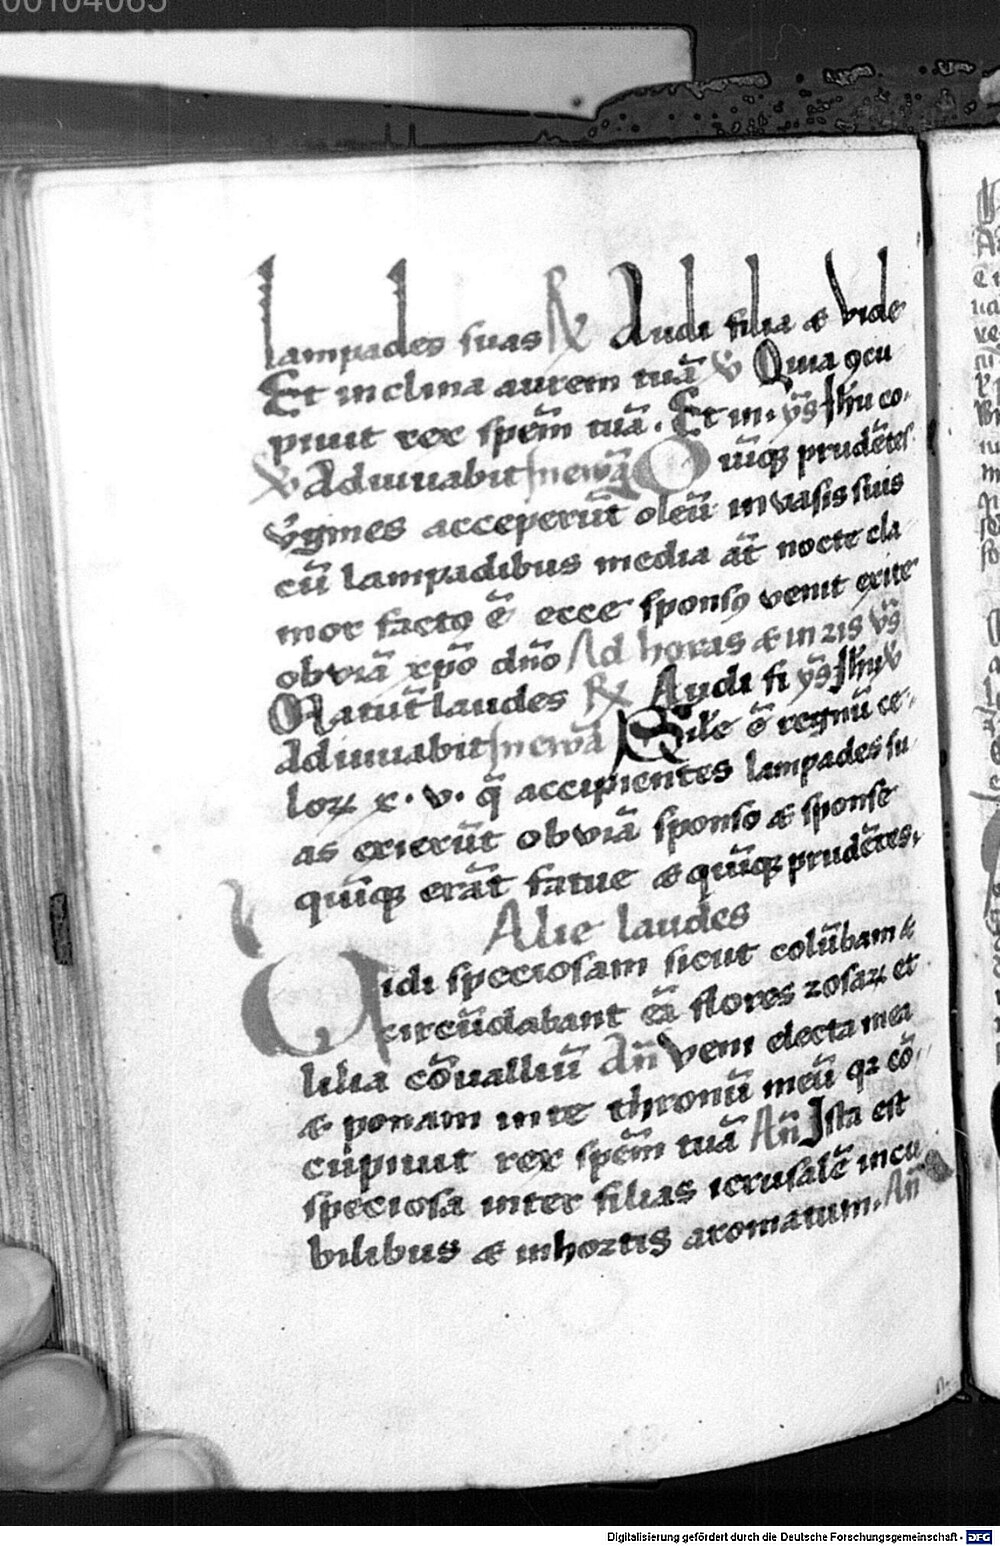 00104065
lampades suas ℟ Audi filia & vide
Et inclina aurem tuā ℣ Quia ꝯcu
piuit rex spēm tuā. Et in. ℣s Jhu co.
℣ Adiuuabit In ewā Quīqꝫ prudētes
v̄gines acceperūt oleū in vasis suis
cū lampadibus media aūt nocte cla
mor factꝰ ē ecce sponsꝰ venit exite
obviā xp̄o dn̄o Ad horas & in 2is ℣s
Maturt̄ laudes ℟ Audi fi ℣s Jhu ℣
Adiuuabit In ewā Sil'e ē regnū ce.
loꝝ x. v. q̄ accipientes lampades su
as exierūt obviā sponso & sponse
quīqꝫ erāt fatue & quīqꝫ prudētes.
Alie laudes
v
Vidi speciosam sicut colūbam &
circūdabant eā flores rosaꝝ et
lilia cōualliū An̄ Veni electa mea
& ponam in te thronū meū qꝛ cō
cupiuit rex spēm tuā An̄ Ista est
speciosa inter filias ierusalē in cu
bilibus & in hortis aromatum. An̄
Digitalisierung gefördert durch die Deutsche Forschungsgemeinschaft - DFG